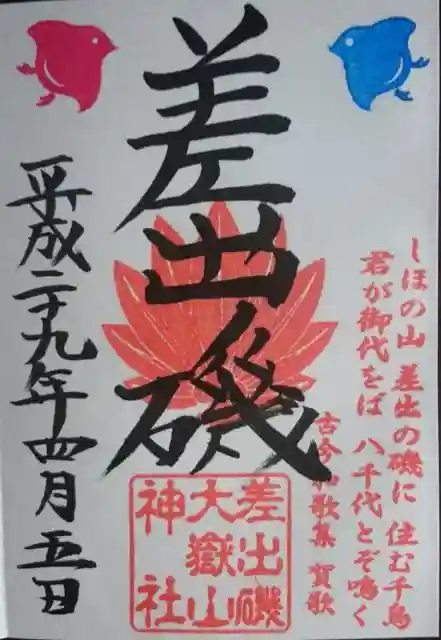 しほの山 差出の磯に 住む千鳥
君が御代をば 八千代とぞ鳴く
古今和歌集 賀歌
差出磯
差出磯
大嶽山
神社
平成二十九年四月五日